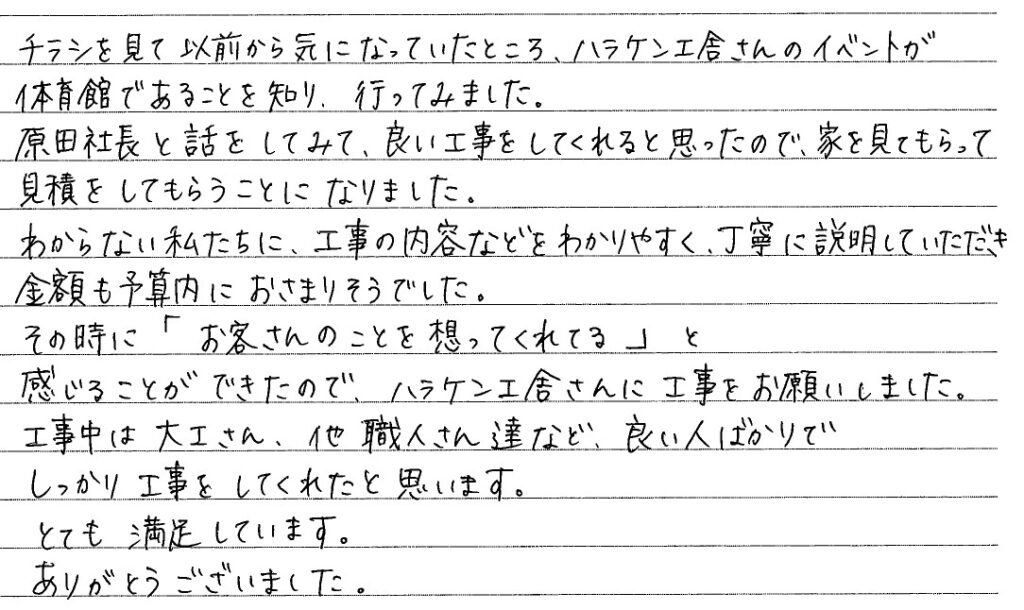 チラシを見て以前から気になっていたところ、ハラケン工舎さんのイベントが
体育館であることを知り、行ってみました。
原田社長と話をしてみて、良い工事をしてくれると思ったので、家を見てもらって
見積をしてもらうことになりました。
わからない私たちに、工事の内容などをわかりやすく、丁寧に説明していただき
金額も予算内におさまりそうでした。
その時に「お客さんのことを想ってくれてる」と
感じることができたので、ハラケン工舎さんに工事をお願いしました。
工事中は大工さん、他職人さん達など、良い人ばかりで
しっかり工事をしてくれたと思います。
とても満足しています。
ありがとうございました。